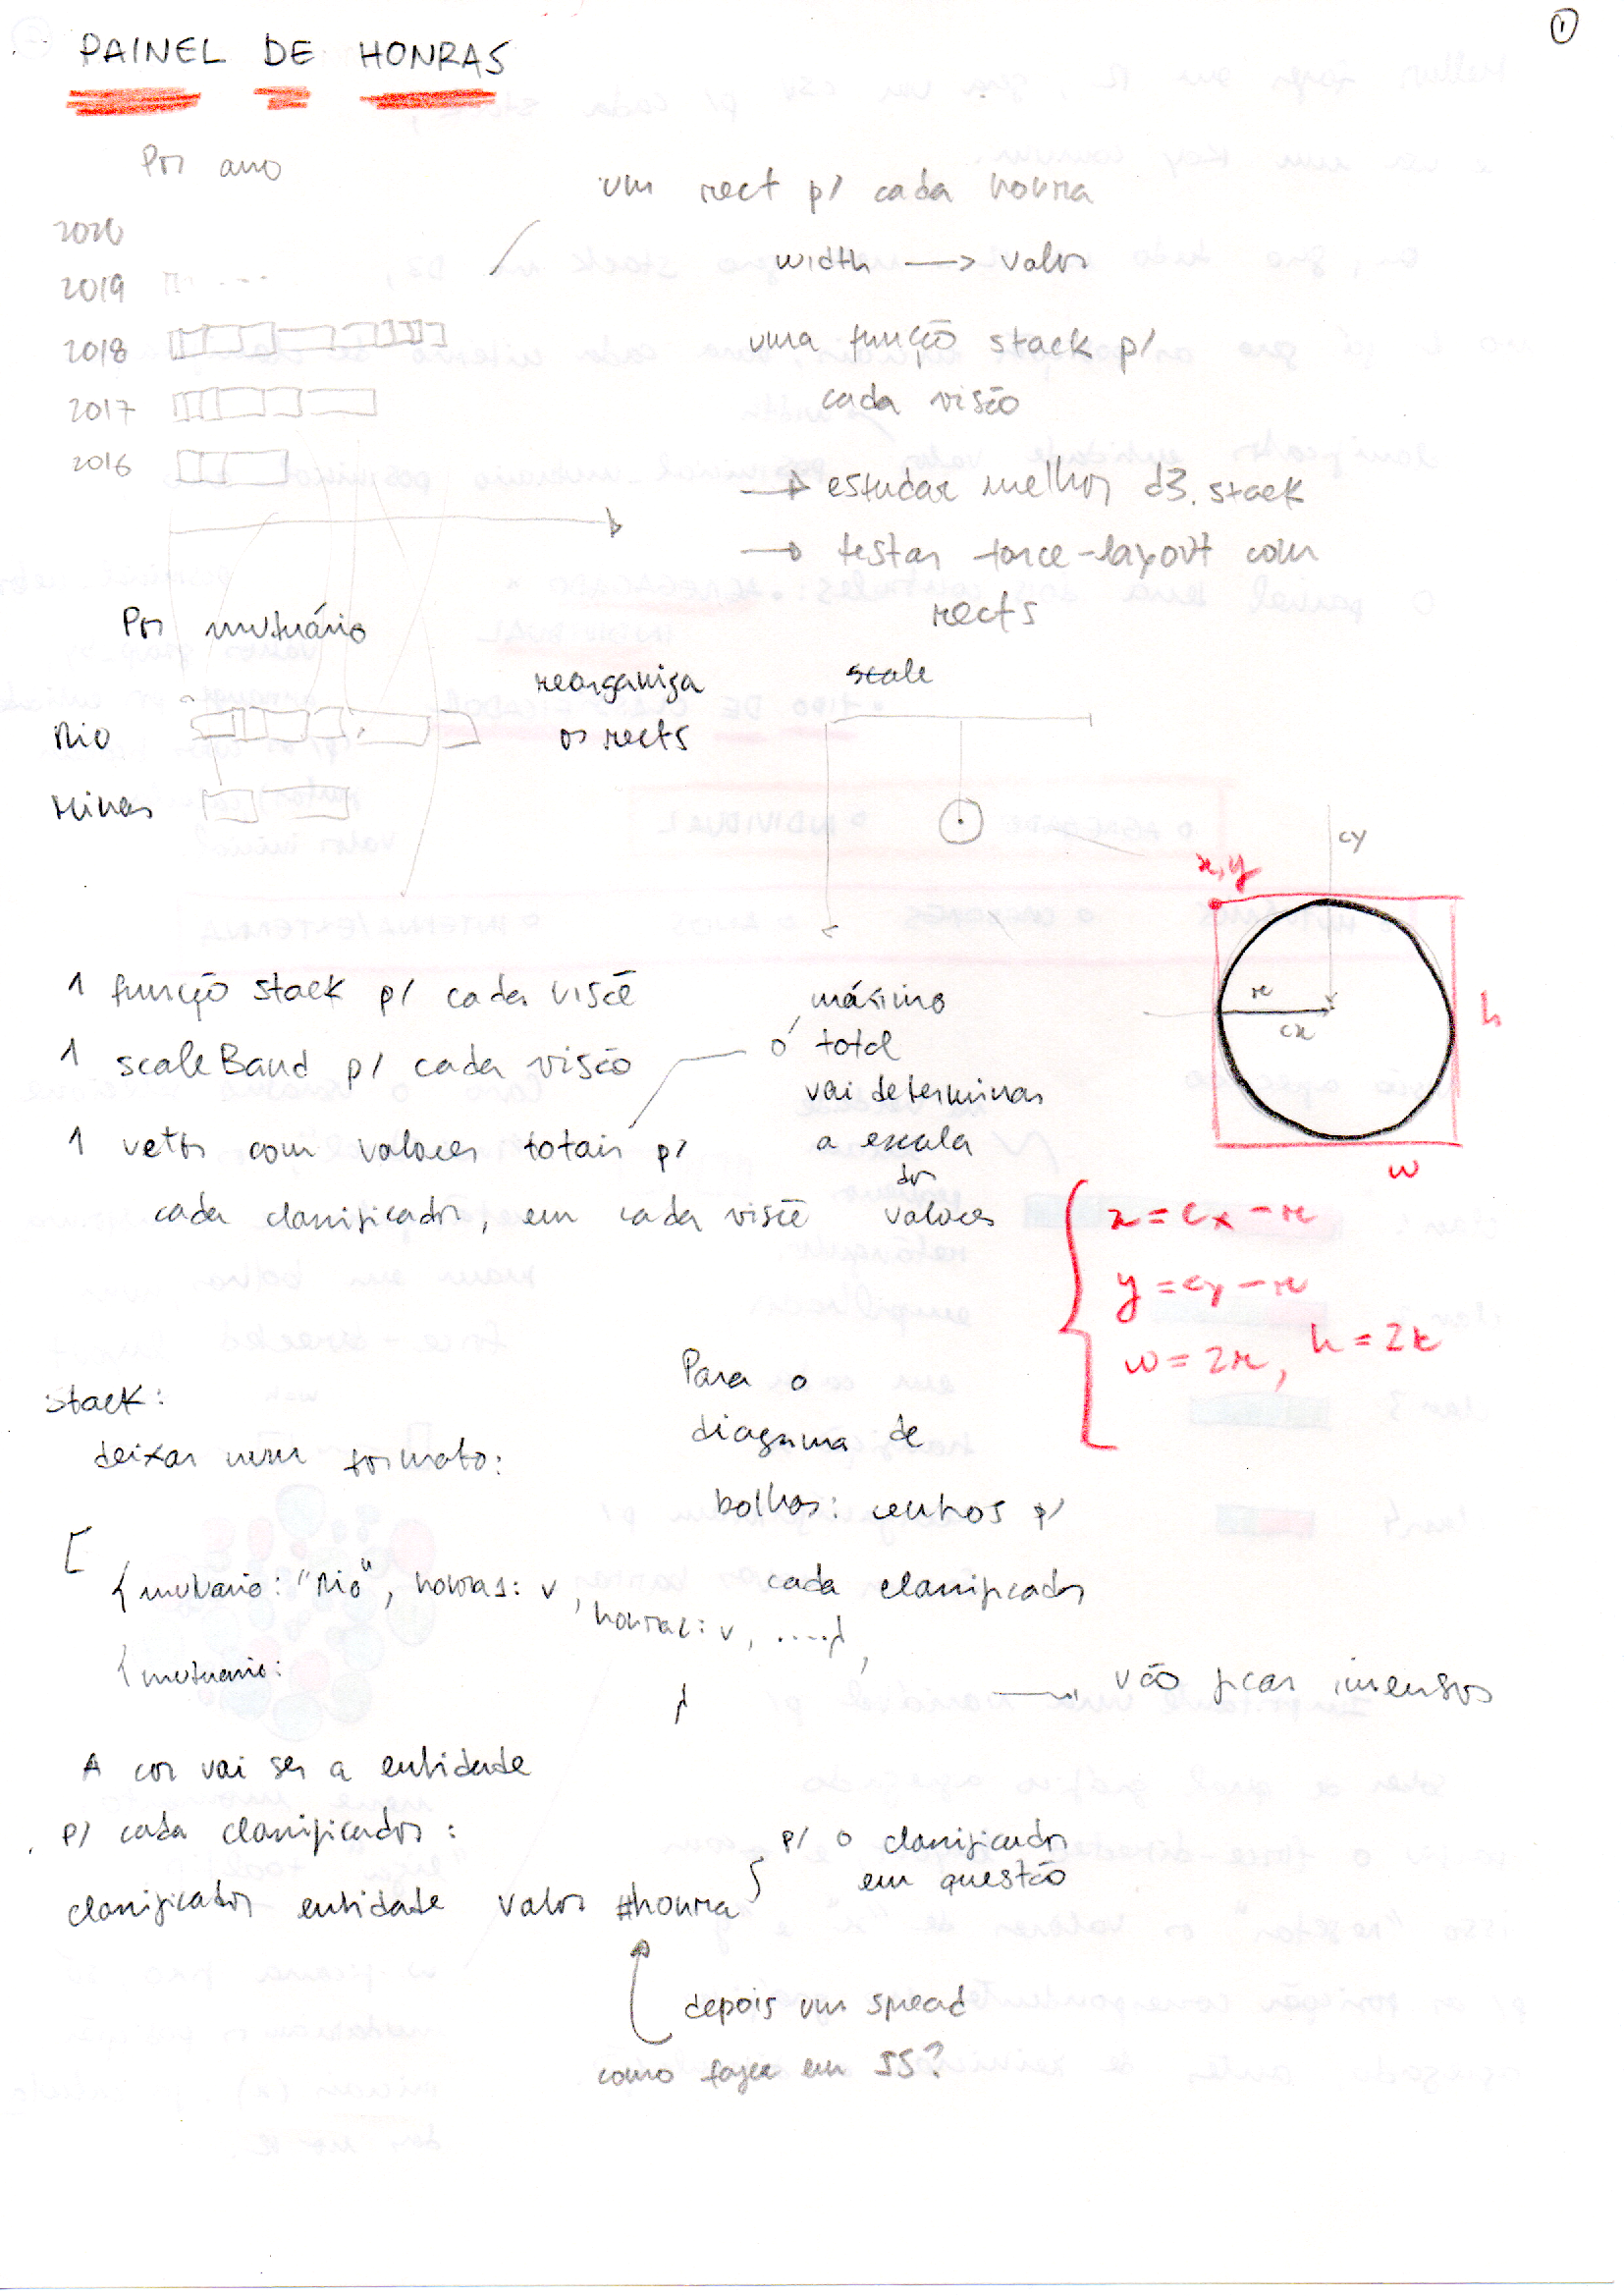 ①
PAINEL DE HONRAS
Por ano
um rect p/ cada honra
2020
width → valor
2019
2018
uma função stack p/
cada visão
2017
2016
→ estudar melhor d3.stack
→ testar force-layout com
rects
Por mutuário
reorganiza
os rects
scale
Rio
Minas
cy
x,y
r
cx
h
w
1 função stack p/ cada visão
1 scaleBand p/ cada visão
1 vetor com valores totais p/
cada classificador, em cada visão
o máximo
total
vai determinar
a escala
dos
valores
x = cx - r
y = cy - r
w = 2r, h = 2r
Stack:
deixar num formato:
[
{mutuario: "Rio", honra1: v, honra2: v, .....},
{mutuario:
}
Para o
diagrama de
bolhas: centros p/
cada classificador
→ vão ficar imensos
A cor vai ser a entidade
p/ cada classificador:
classificador entidade valor #honra
p/ o classificador
em questão
depois um spread
como fazer em JS?